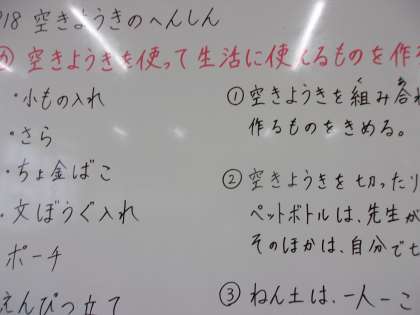 918 空きようきのへんしん
め 空きようきを使って生活に使えるものを作
・小もの入れ
・さら
・ちょ金ばこ
・文ぼうぐ入れ
ポーチ
えんぴつ立て
① 空きようきを組み合わ
く あ
作るものをきめる。
② 空きようきを切ったり
ペットボトルは、先生が
そのほかは、自分で
③ ねん土は、一人一こ